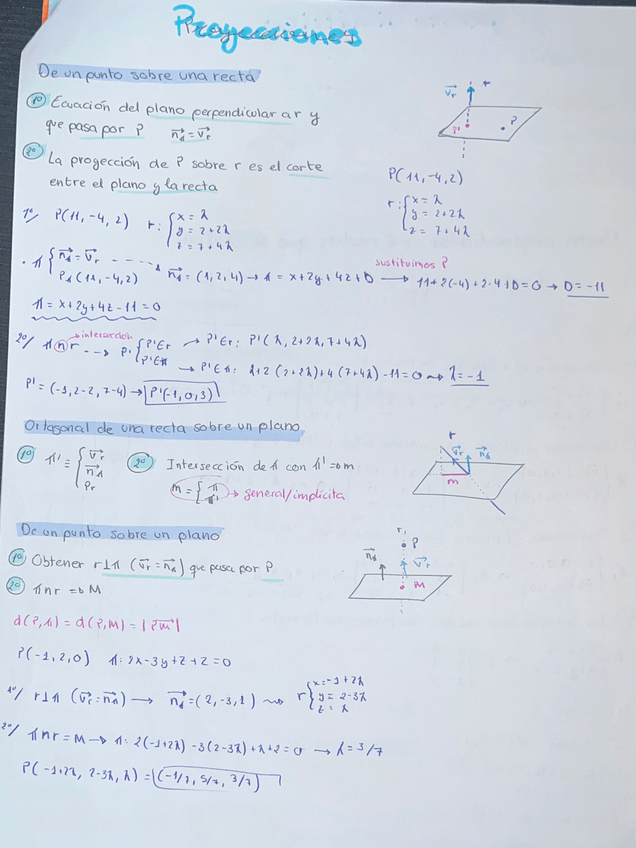 Proyecciones
De un punto sobre una recta
1º Ecuación del plano perpendicular a r y
que pasa por P n⃗π = v⃗r
2º La proyección de P sobre r es el corte
entre el plano y la recta
v⃗r r
P' P
P(11, -4, 2)
r: { x = λ
y = 2+2λ
z = 7+4λ
1º/ P(11, -4, 2) r: { x = λ
y = 2+2λ
z = 7+4λ
· π { n⃗π = v⃗r
Pπ(11, -4, 2) n⃗π = (1, 2, 4) → π = x+2y+4z+D → sustituimos P 11+2(-4)+2·4+D=0 → D = -11
π = x+2y+4z-11=0
2º/ π ∩ r → intersección
P' { P'∈r → P'∈r: P'(λ, 2+2λ, 7+4λ)
P'∈π → P'∈π: λ+2(2+2λ)+4(7+4λ)-11=0 → λ=-1
P' = (-1, 2-2, 7-4) → P'(-1, 0, 3)
Ortogonal de una recta sobre un plano
1º π' ≡ { v⃗r
n⃗π
Pr
2º Intersección de π con π' ⇒ m
m = { π
π' → general/implícita
r v⃗r n⃗π
m
De un punto sobre un plano
1º Obtener r⊥π (v⃗r = n⃗π) que pasa por P
2º π∩r ⇒ M
r
P
n⃗π v⃗r
M
d(P, π) = d(P, M) = |PM⃗|
P(-1, 2, 0) π: 2x-3y+z+2=0
1º/ r⊥π (v⃗r = n⃗π) → n⃗π = (2, -3, 1) → r { x=-1+2λ
y = 2-3λ
z = λ
2º/ π∩r = M → π: 2(-1+2λ) -3(2-3λ)+λ+2=0 → λ=3/7
P(-1+2λ, 2-3λ, λ) = (-1/7, 5/7, 3/7)